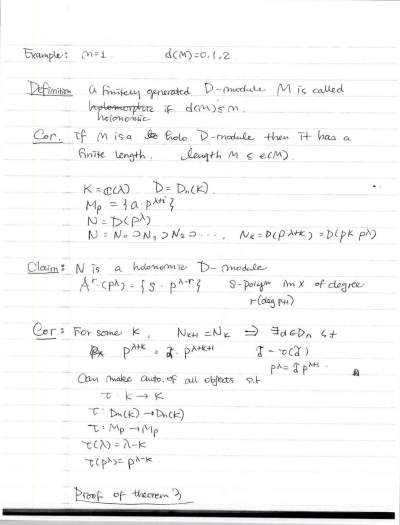 Example: n=1 d(M)=0,1,2
Definition A finitely generated D-module M is called
holomorphic if d(M)≤n.
holonomic
Cor. If M is a holo D-module then it has a
finite length. length M ≤ e(M).
K=ℂ(λ) D=Dn(K).
Mp = {a·p^{λ+i}}
N=D(p^λ)
N=N₀⊃N₁⊃N₂⊃..., Nk=D(p^{λ+k})=D(p^k p^λ)
Claim: N is a holonomic D-module
A^r·(p^λ)={s·p^{λ-r}} s-polyn in X of degree
r(deg p+1)
Cor: For some k, N_{k+1}=N_k ⇒ ∃d∈Dn s.t
p^{λ+k} = · p^{λ+k+1}
p^λ= p^{λ+1}
Can make auto. of all objects s.t
τ: K→K
τ: Dn(K)→Dn(K)
τ: Mp→Mp
τ(λ)=λ-k
τ(p^λ)=p^{λ-k}
Proof of theorem 3